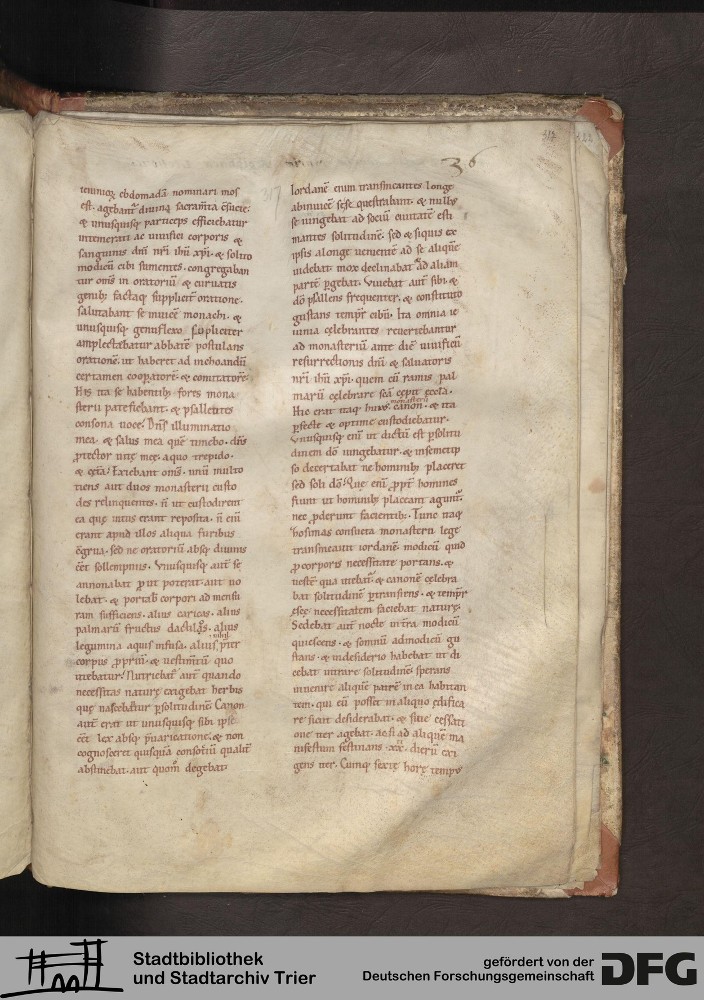 36
ieiunioꝝ ebdomadā nominari mos
est. agebant᷑ diuina sacram̄ta c̄suete.
& unusquisq; particeps efficiebatur
intemerati ac uiuifici corporis &
sanguinis dn̄i nr̄i ihū xp̄i. & solito
modicū cibi sumentes. congregaban
tur om̄s in oratoriū & curuatis
genib; factaq; supplicit̄ oratione.
salutabant se inuicē monachi. &
unusquisq; genuflexo supliciter
amplectebatur abbatē postulans
orationē. ut haberet ad inchoandū
certamen cooꝑatorē. & comitatorē.
His ita se habentib; fores mona
sterii patefiebant. & psallentes
consona uoce. Dn̄s illuminatio
mea. & salus mea quē timebo. dn̄s
ꝓtector uitę meę. a quo trepido.
& cęt̄a. Exiebant om̄s. unū multo
tiens aut duos monasterii custo
des relinquentes. n̄ ut custodirent
ea quę intus erant reposita. n̄ enī
erant apud illos aliqua furibus
c̄grua. sed ne oratoriū absq; diuinis
eēt sollempniis. Vnusquisq; aut̄ se
annonabat ꝓut poterat. aut uo
lebat. & portab̄ corpori ad mensu
ram sufficiens. alius caricas. alius
palmarū fructus dactilos. alius
legumina aquis infusa. alius nihil p̄ter
corpus ꝓpriū. & uestim̄tū quo
utebatur. Nutriebat᷑ aut̄ quando
necessitas naturę exigebat herbis
quę nascebat᷑ ꝑ solitudinē. Canon
aut̄ erat ut unusquisq; sibi ipse
eēt lex absq; p̄uaricatione. & non
cognosceret quisquā consortiū qualit̄
abstinebat. aut quom̄ degebat.
317
Iordanē enim transmeantes longe
abinuicē sese questrabant. & nullꝰ
se iungebat ad sociū ciuitatē esti
mantes solitudinē. sed & si quis ex
ipsis a longe uenientē ad se aliquē
uidebat. mox declinabat ad aliam
partē ꝑgebat. Viuebat aut̄ sibi. &
dō psallens frequenter. & constituto
gustans tempr̄ cibū. Ita omnia ie
iunia celebrantes reuertebantur
ad monasteriū ante diē uiuificū
resurrectionis dn̄i & saluatoris
nr̄i ihū xp̄i. quem cū ramis pal
marū celebrare sc̄a cępit eccła.
Hic erat itaq; huiꝰ monasterii canon. & ita
ꝑfecte & optime custodiebatur.
Vnusquisq; enī ut dictū est ꝑ solitu
dinem dō iungebatur. & in semetip
so decertabat ne hominib; placeret
sed soli dō. Que enī ꝓpt̄ homines
fiunt ut hominib; placeant agunt᷑.
nec ꝓderunt facientib;. Tunc itaq;
zosimas consueta monasterii lege
transmeauit iordanē. modicū quid
ꝓ corporis necessitate portans. &
uestē qua utebat᷑. & canonē celebra
bat solitudinē ꝑtransiens. & tempr̄
escę necessitatem faciebat naturę.
Sedebat aut̄ nocte in t̄ra modicū
quiescens. & somnū admodicū gu
stans. & in desiderio habebat ut di
cebat intrare solitudinē. sperans
inuenire aliquē patrē in ea habitan
tem. qui eū posset in aliquo edifica
re sicut desiderabat. & sine cessati
one iter agebat. ac si ad aliquē ma
nifestum festinans. xx. dierū exi
gens iter. Cumq; sextę horę tempꝰ
Stadtbibliothek
und Stadtarchiv Trier
gefördert von der
Deutschen Forschungsgemeinschaft
DFG